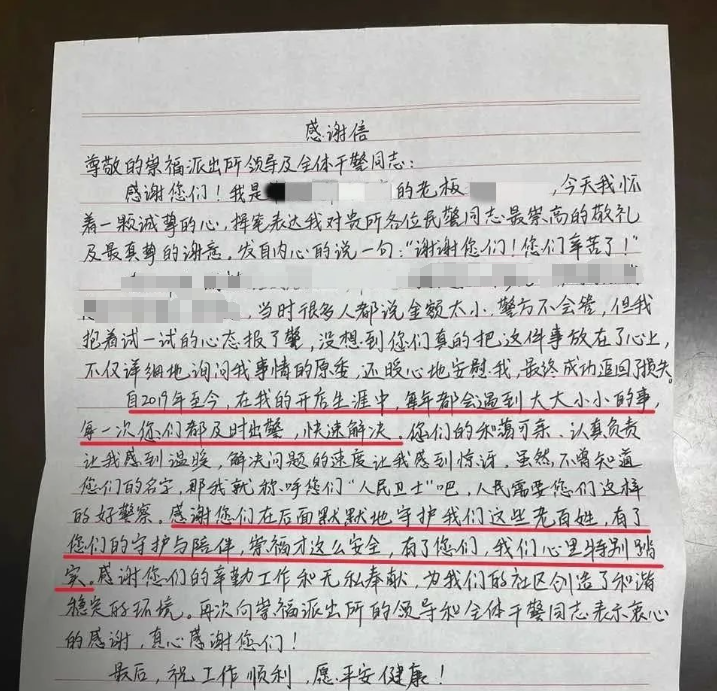 感谢信
尊敬的崇福派出所领导及全体干警同志：
感谢您们！我是的老板，今天我怀
着一颗诚挚的心，挥笔表达我对贵所各位民警同志最崇高的敬礼
及最真挚的谢意。发自内心的说一句：“谢谢您们！您们辛苦了！”
，当时很多人都说金额太小，警方不会管，但我
抱着试一试的心态报了警，没想到您们真的把这件事放在了心上，
不仅详细地询问我事情的原委，还暖心地安慰我，最终成功追回了损失。
自2019年至今，在我的开店生涯中，每年都会遇到大大小小的事，
每一次您们都及时出警，快速解决。您们的和蔼可亲、认真负责
让我感到温暖，解决问题的速度让我感到惊讶。虽然不曾知道
您们的名字，那我就称呼您们“人民卫士”吧，人民需要您们这样
的好警察。感谢您们在后面默默地守护我们这些老百姓，有了
您们的守护与陪伴，崇福才这么安全，有了您们，我们心里特别踏
实。感谢您们的辛勤工作和无私奉献，为我们的社区创造了和谐
稳定的环境。再次向崇福派出所的领导和全体干警同志表示衷心
的感谢，真心感谢您们！
最后，祝工作顺利，愿平安健康！